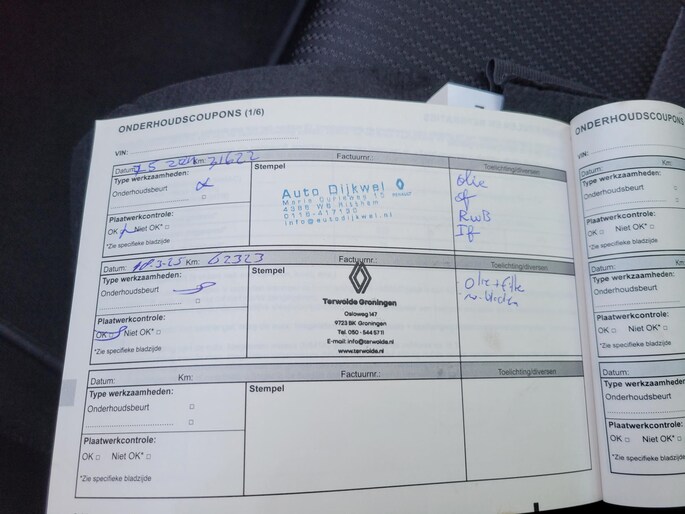 ONDERHOUDSCOUPONS (1/6)
VIN:
Datum: Km: 31622 Factuurnr.:
Type werkzaamheden:
Onderhoudsbeurt
Plaatwerkcontrole:
OK □ Niet OK* □
*Zie specifieke bladzijde
Stempel
Auto Dijkwel
RENAULT
0118-417120
info@autodijkwel.nl
Toelichting/diversen
olie
of
RWB
If
Datum: Km: 62323 Factuurnr.:
Type werkzaamheden:
Onderhoudsbeurt
Plaatwerkcontrole:
OK □ Niet OK* □
*Zie specifieke bladzijde
Stempel
Terwolde Groningen
Osloweg 147
9723 BK Groningen
Tel. 050 - 544 5711
E-mail: info@terwolde.nl
www.terwolde.nl
Toelichting/diversen
Datum: Km: Factuurnr.:
Type werkzaamheden:
Onderhoudsbeurt □
□
Plaatwerkcontrole:
OK □ Niet OK* □
*Zie specifieke bladzijde
Stempel
Toelichting/diversen
ONDERHOUDSCOUPONS
VIN:
Datum: Km:
Type werkzaamheden:
Onderhoudsbeurt □
□
Plaatwerkcontrole:
OK □ Niet OK* □
*Zie specifieke bladzijde
Datum: Km:
Type werkzaamheden:
Onderhoudsbeurt □
□
Plaatwerkcontrole:
OK □ Niet OK* □
*Zie specifieke bladzijde
Datum: Km:
Type werkzaamheden:
Onderhoudsbeurt □
□
Plaatwerkcontrole:
OK □ Niet OK* □
*Zie specifieke bladzijde